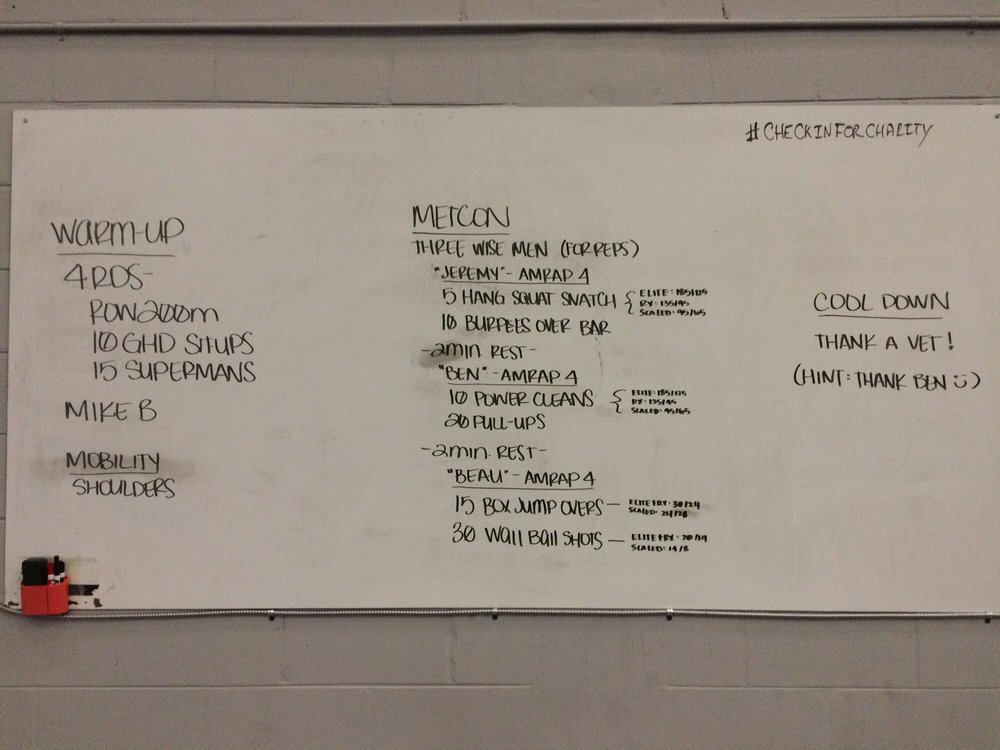 #CHECKINFORCHARITY
WARM-UP
4 RDS-
ROW 200m
10 GHD SITUPS
15 SUPERMANS
MIKE B
MOBILITY
SHOULDERS
METCON
THREE WISE MEN (FOR REPS)
"JEREMY" - AMRAP 4
5 HANG SQUAT SNATCH { ELITE: 185/125
RX: 135/95
SCALED: 95/65
10 BURPEES OVER BAR
-2min REST-
"BEN" - AMRAP 4
10 POWER CLEANS { ELITE: 185/125
RX: 135/95
SCALED: 95/65
20 PULL-UPS
-2min. REST-
"BEAU" - AMRAP 4
15 BOX JUMP OVERS - ELITE & RX: 30/24
SCALED:
30 Wall Ball SHOTS - ELITE & RX: 20/14
SCALED: 14/8
COOL DOWN
THANK A VET!
(HINT: THANK BEN :))